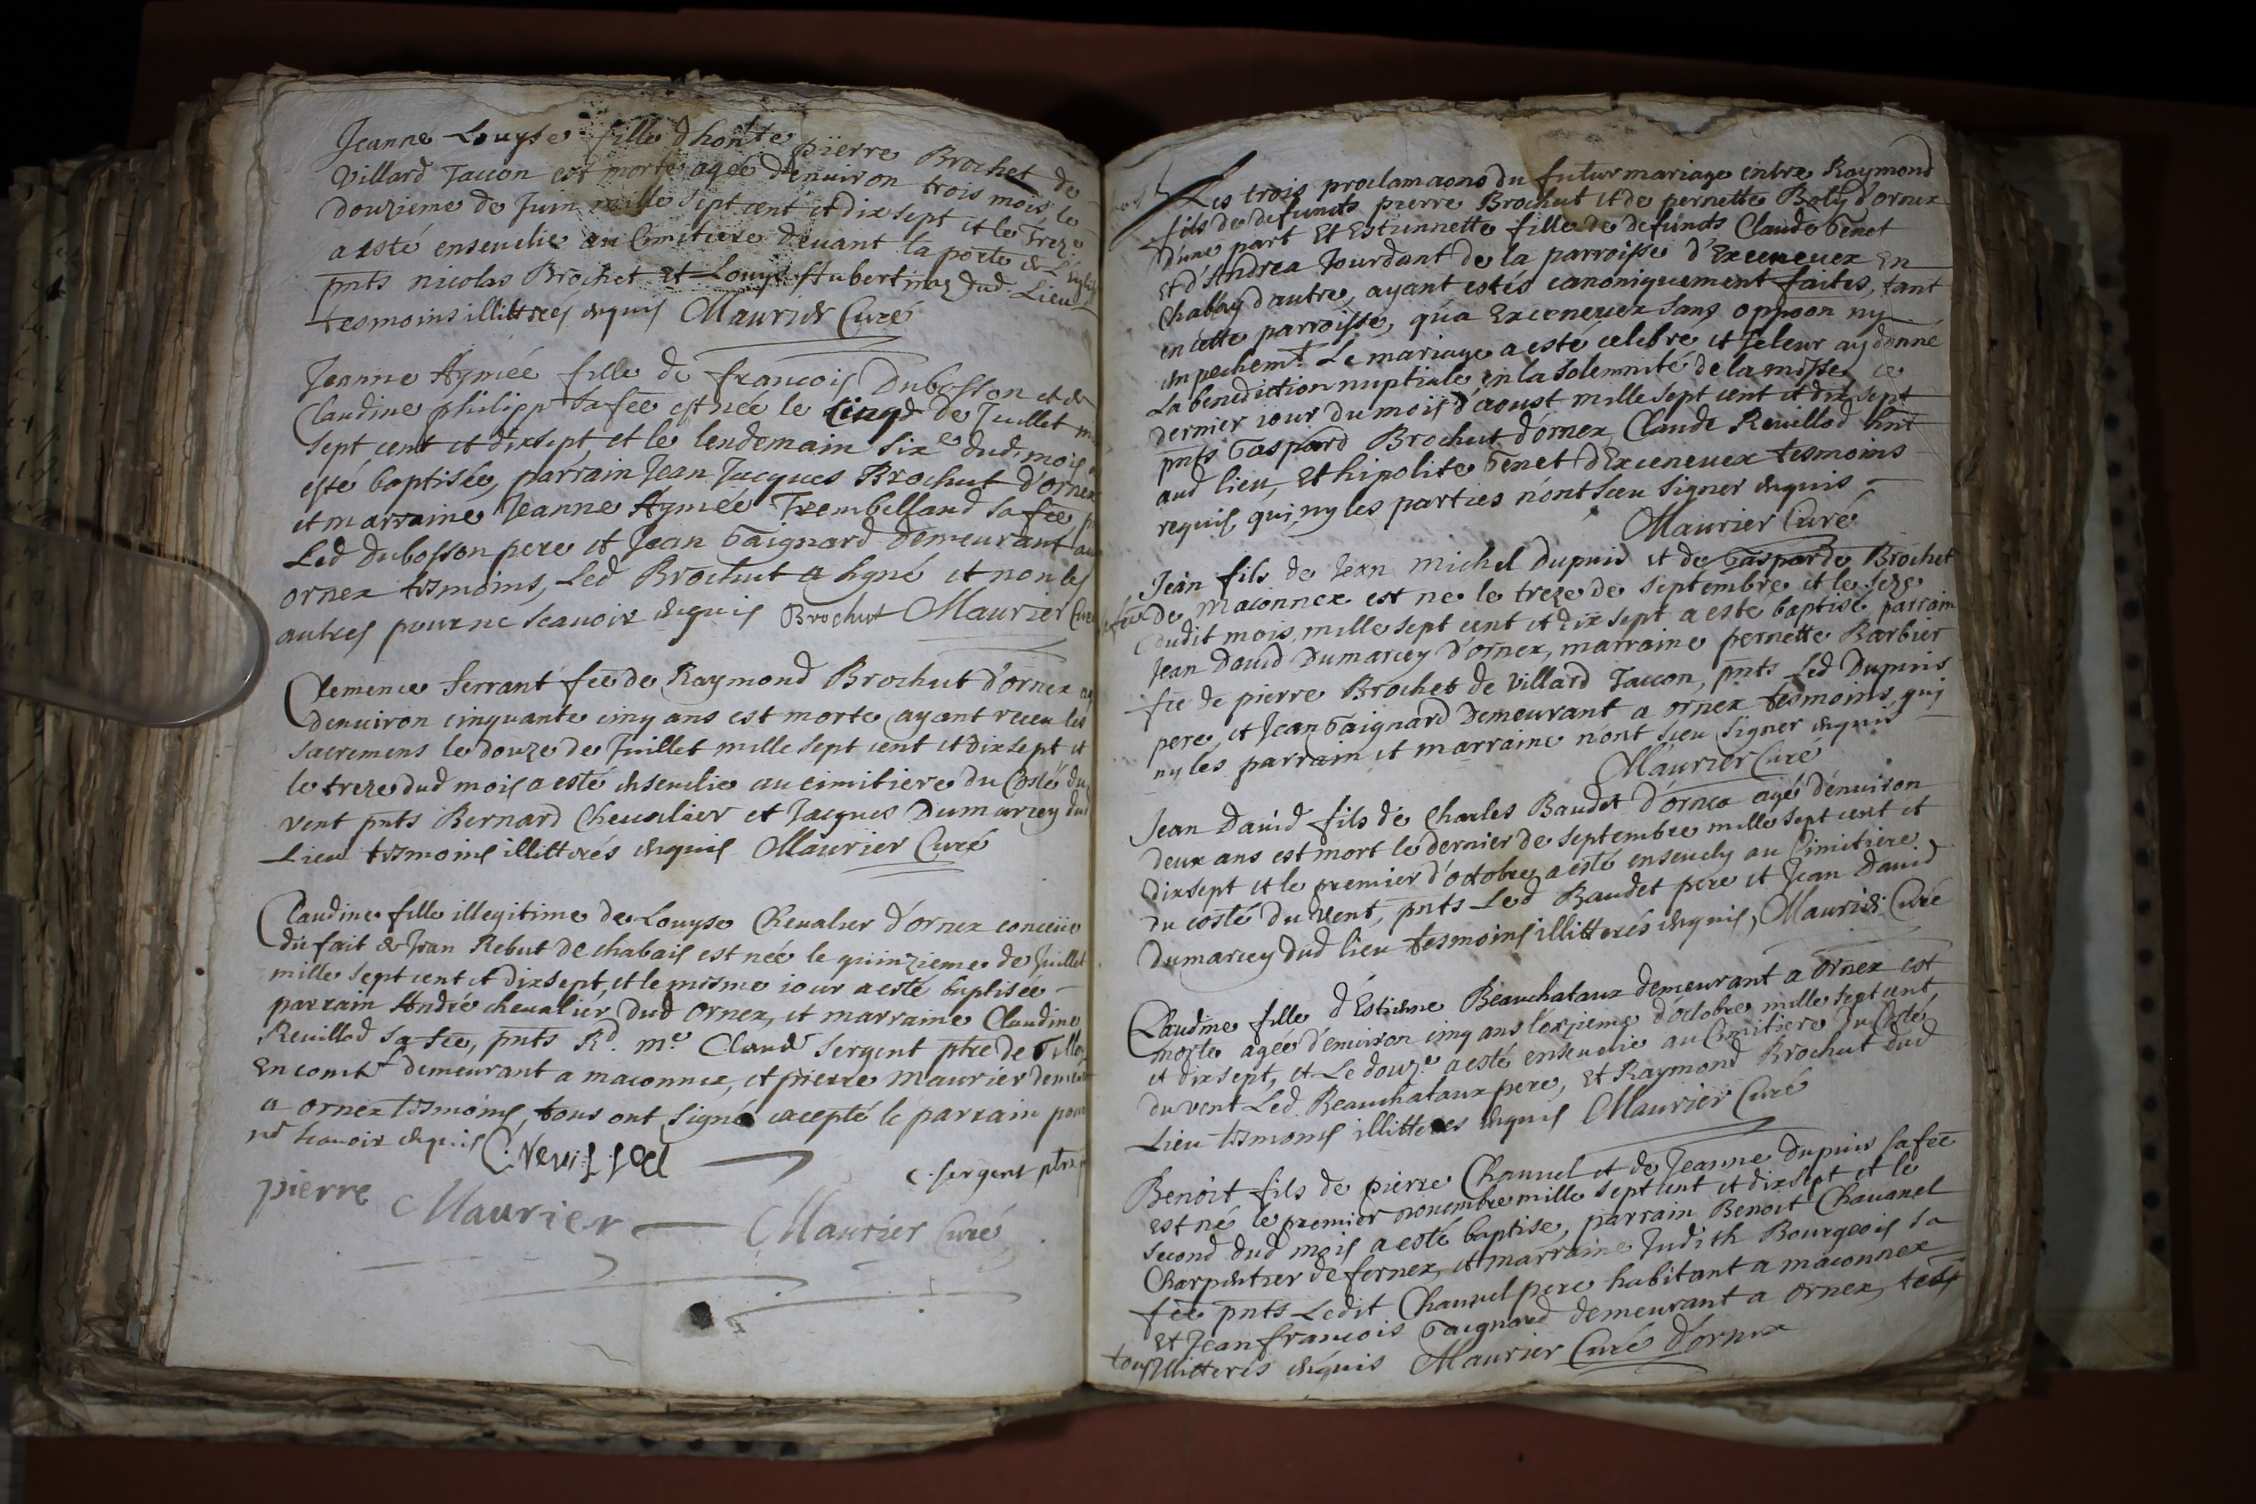 Jeanne Louyse fille d'honte pierre Brochet de
Villard Taccon est morte agée d'enuiron trois mois le
douzieme de Juin mille sept cent et dix sept et le treze
a esté enseuelie au Cimitiere deuant la porte de l'Eglise
pnts nicolas Brochet et Louys Hubert dud Lieu
tesmoins illitterés enquis Maurier Curé
Jeanne Aymée fille de françois Dubosson et de
Claudine philipp sa fēe est née le Cinq de Juillet
sept cent et dixsept, et le lendemain sixe dud. mois
esté baptisée, parrain Jean Jacques Brochut d'ornex
et marraine Jeanne Aymée Trembelland sa fēe
Led Dubosson pere et Jean Gaignard demeurant
ornex tesmoins, Led Brochut a signé et non les
autres pour ne scauoir enquis Brochut Maurier Curé
Clemence Serrant fēe de Raymond Brochut d'ornex
denuiron cinquante cinq ans est morte ayant receu les
sacremens le douze de Juillet mille sept cent et dixsept et
le treze dud mois a esté enseuelie au cimitiere du Costé du
vent pnts Bernard Cheualier et Jacques Dumarcey dud
Lieu tesmoins illitterés enquis Maurier Curé
Claudine fille illegitime de Louyse Cheualier d'ornex conceüe
du fait de Jean Rebut de chabais est née le quinzieme de Juillet
mille sept cent et dixsept, et le mesme iour a esté baptisée
parrain André cheualier dud ornex, et marraine Claudine
Reuillod sa fēe, pnts Rd. me Claude Sergent ptre de
En comté demeurant a maconnex, et pierre Maurier demeurant
a ornex tesmoins, tous ont signé excepté le parrain pour
ne scauoir enquis C. Reuillod
C. Sergent ptre
pierre Maurier Maurier Curé
Les trois proclamaōns du futur mariage entre Raymond
fils de defuncts pierre Brochut et de pernette Boty d'ornex
d'une part Et Estiennette fille de defuncts Claude Genet
et d'Andrea Jourdant de la parroisse d'Exceneuex En
Chablay d'autre, ayant estés canoniquement faites, tant
en cette parroisse, qu'a Exceneuex sans oppoōn ny
empechemt. Le mariage a esté celebré et Je leur ay donné
La benediction nuptiale en la solemnité de la messe ce
dernier iour du mois d'aoust mille sept cent et dix sept
pnts Gaspard Brochut d'ornex, Claude Reuillod
aud lieu, Et hipolite Genet d'Exceneuex tesmoins
requis, qui, ny les parties n'ont sceu signer enquis
Maurier Curé
Jean fils de Jean michel Dupuis et de Gasparde Brochet
sa fēe de maconnex est ne le treze de septembre et le seze
dudit mois mille sept cent et dix sept a este baptisé parrain
Jean Dauid Dumarcey d'ornex, marraine pernette Barbier
fēe de pierre Brochet de Villard Taccon, pnts Led Dupuis
pere, et Jean Gaignard demeurant a ornex tesmoins, qui
ny les parrain et marraine n'ont sceu signer enquis
Maurier Curé
Jean Dauid fils de Charles Baudet d'ornex agé d'enuiron
deux ans est mort le dernier de septembre mille sept cent et
dixsept et le premier d'octobre a esté enseuely au Cimitiere
du costé du vent, pnts Led Baudet pere et Jean Dauid
Dumarcey dud lieu tesmoins illitterés enquis, Maurier Curé
Claudine fille d'Estienne Beauchataux demeurant a ornex est
morte agée d'enuiron cinq ans l'onzieme d'octobre mille sept cent
et dixsept, et Le douze. a esté enseuelie au Cimitiere du Costé
du vent Led. Beauchataux pere, et Raymond Brochut dud
Lieu tesmoins illitterés enquis Maurier Curé
Benoit fils de pierre Chauuel et de Jeanne Dupuis sa fēe
est né le premier nouembre mille sept cent et dixsept et le
second dud mois a esté baptise, parrain Benoit Chauanel
Charpentier de fernex, et marraine Judith Bourgeois sa
fēe pnts Ledit Chauuel pere habitant a maconnex
et Jean françois Gaignard demeurant a ornex, tesm
tous illitterés enquis Maurier Curé d'ornex